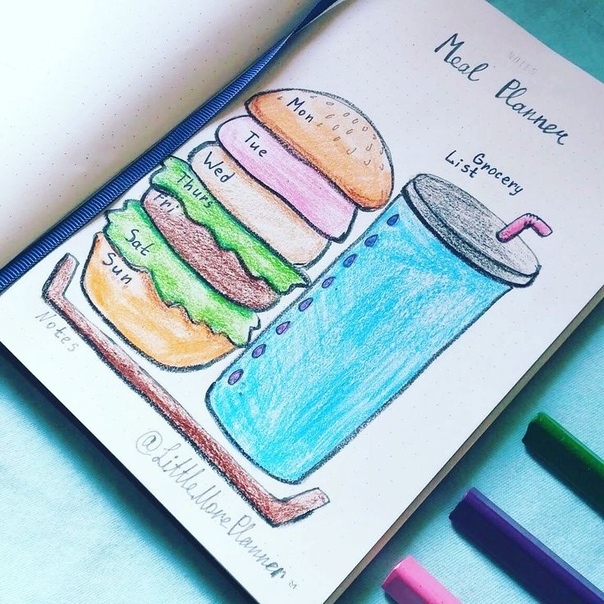 Meal Planner
Grocery
List
Mon
Tue
Wed
Thurs
Fri
Sat
Sun
Notes
@LittleMorePlanner